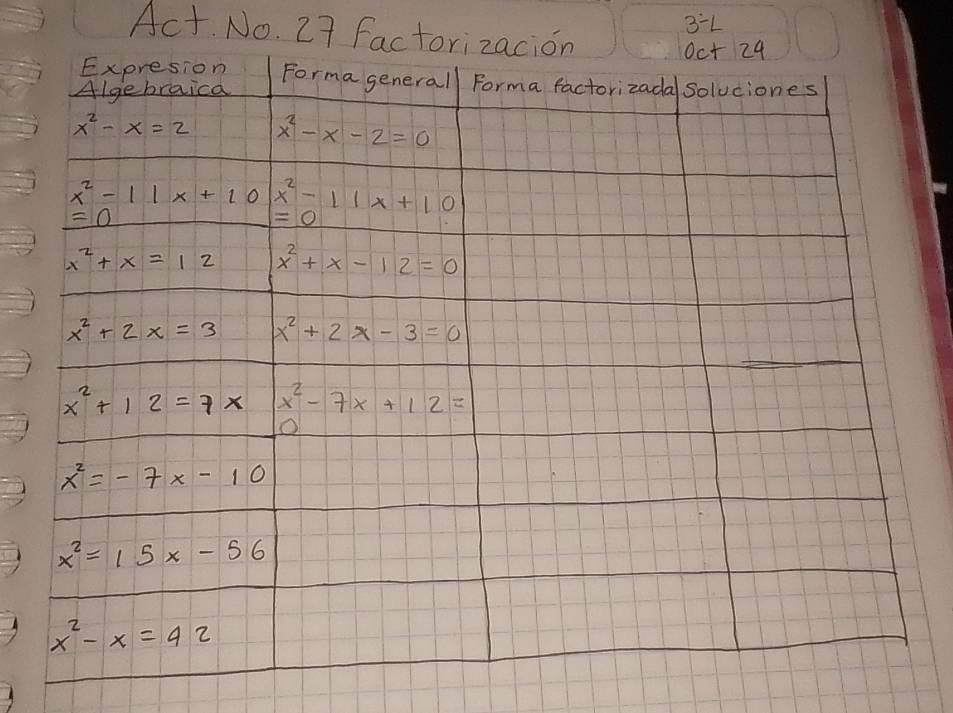 Act. No. 27 Factorización
3-L
Oct 24
Expresion Algebraica | Forma general | Forma factorizada | Soluciones
x² - x = 2 | x² - x - 2 = 0
x² - 11x + 10 = 0 | x² - 11x + 10 = 0
x² + x = 12 | x² + x - 12 = 0
x² + 2x = 3 | x² + 2x - 3 = 0
x² + 12 = 7x | x² - 7x + 12 = 0
x² = -7x - 10
x² = 15x - 56
x² - x = 42